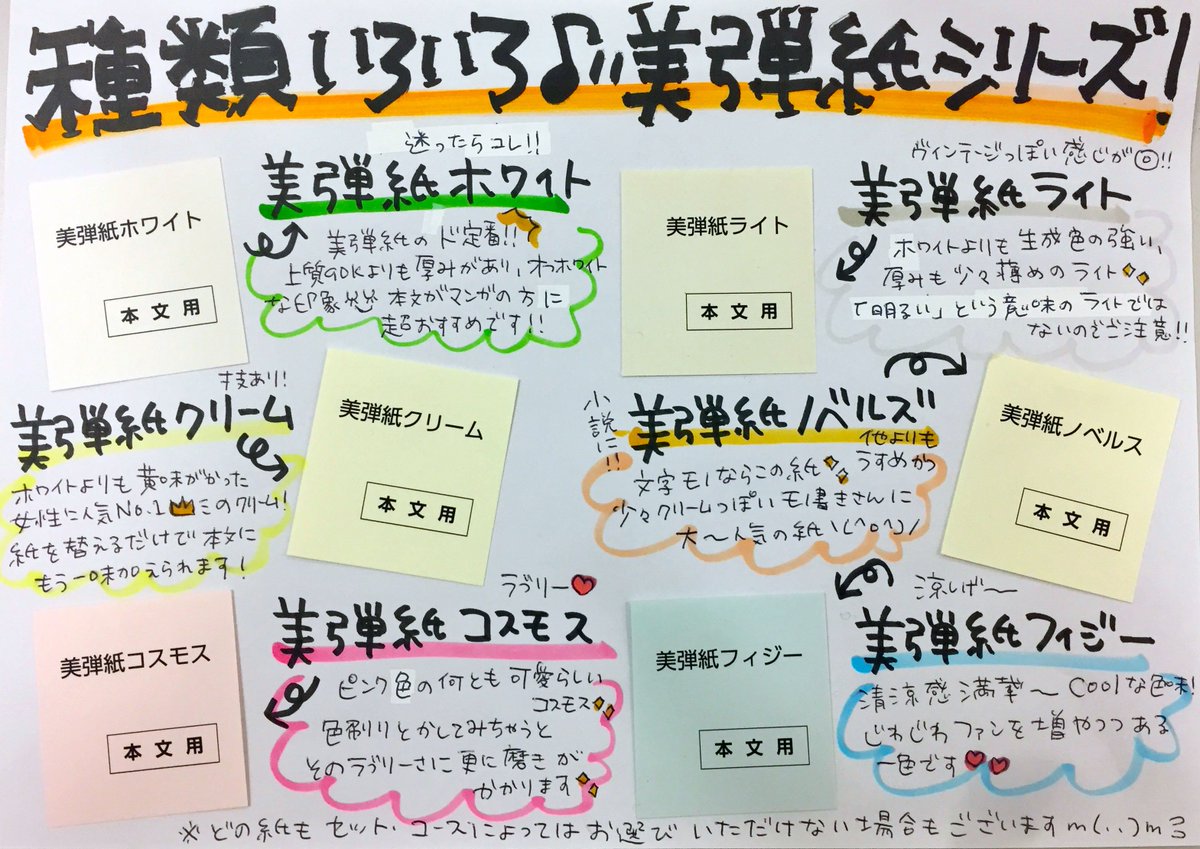 種類いろいろ♪美弾紙シリーズ!
迷ったらコレ!!
美弾紙ホワイト
美弾紙ホワイト
本文用
美弾紙のド定番!!
上質90Kよりも厚みがあり、オフホワイト
な印象 本文がマンガの方に
超おすすめです!!
ヴィンテージっぽい感じが◎!!
美弾紙ライト
美弾紙ライト
本文用
ホワイトよりも生成色の強い、
厚みも少々薄めのライト
「明るい」という意味のライトでは
ないのでご注意!!
技あり!
美弾紙クリーム
美弾紙クリーム
本文用
ホワイトよりも黄味がかった
女性に人気No.1のクリーム!
紙を替えるだけで本文に
もう一味加えられます!
小説に!!
美弾紙ノベルズ
美弾紙ノベルス
本文用
他よりも
うすめかつ
文字モノならこの紙
少々クリームっぽいモノ書きさんに
大〜人気の紙\(^o^)/
ラブリー♥
美弾紙コスモス
美弾紙コスモス
本文用
ピンク色の何とも可愛らしい
コスモス
色刷りとかしてみちゃうと
そのラブリーさに更に磨きが
かかります
涼しげ〜
美弾紙フィジー
美弾紙フィジー
本文用
清涼感満載〜Coolな色味!
じわじわファンを増やしつつある
一色です♥♥
※どの紙もセット・コースによってはお選びいただけない場合もございますm(..)m